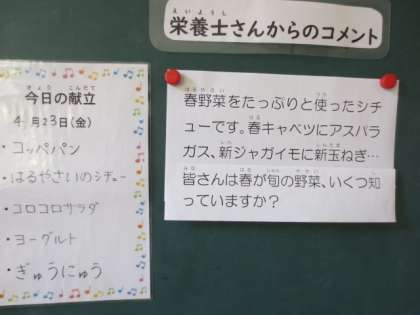 えいようし
栄養士さんからのコメント
きょう こんだて
今日の献立
4月23日(金)
・コッパパン
・はるやさいのシチュー
・コロコロサラダ
・ヨーグルト
・ぎゅうにゅう
はるやさい つか
春野菜をたっぷりと使ったシチ
はる
ューです。春キャベツにアスパラ
しん しんたま
ガス、新ジャガイモに新玉ねぎ…
みな はる しゅん やさい し
皆さんは春が旬の野菜、いくつ知
っていますか?